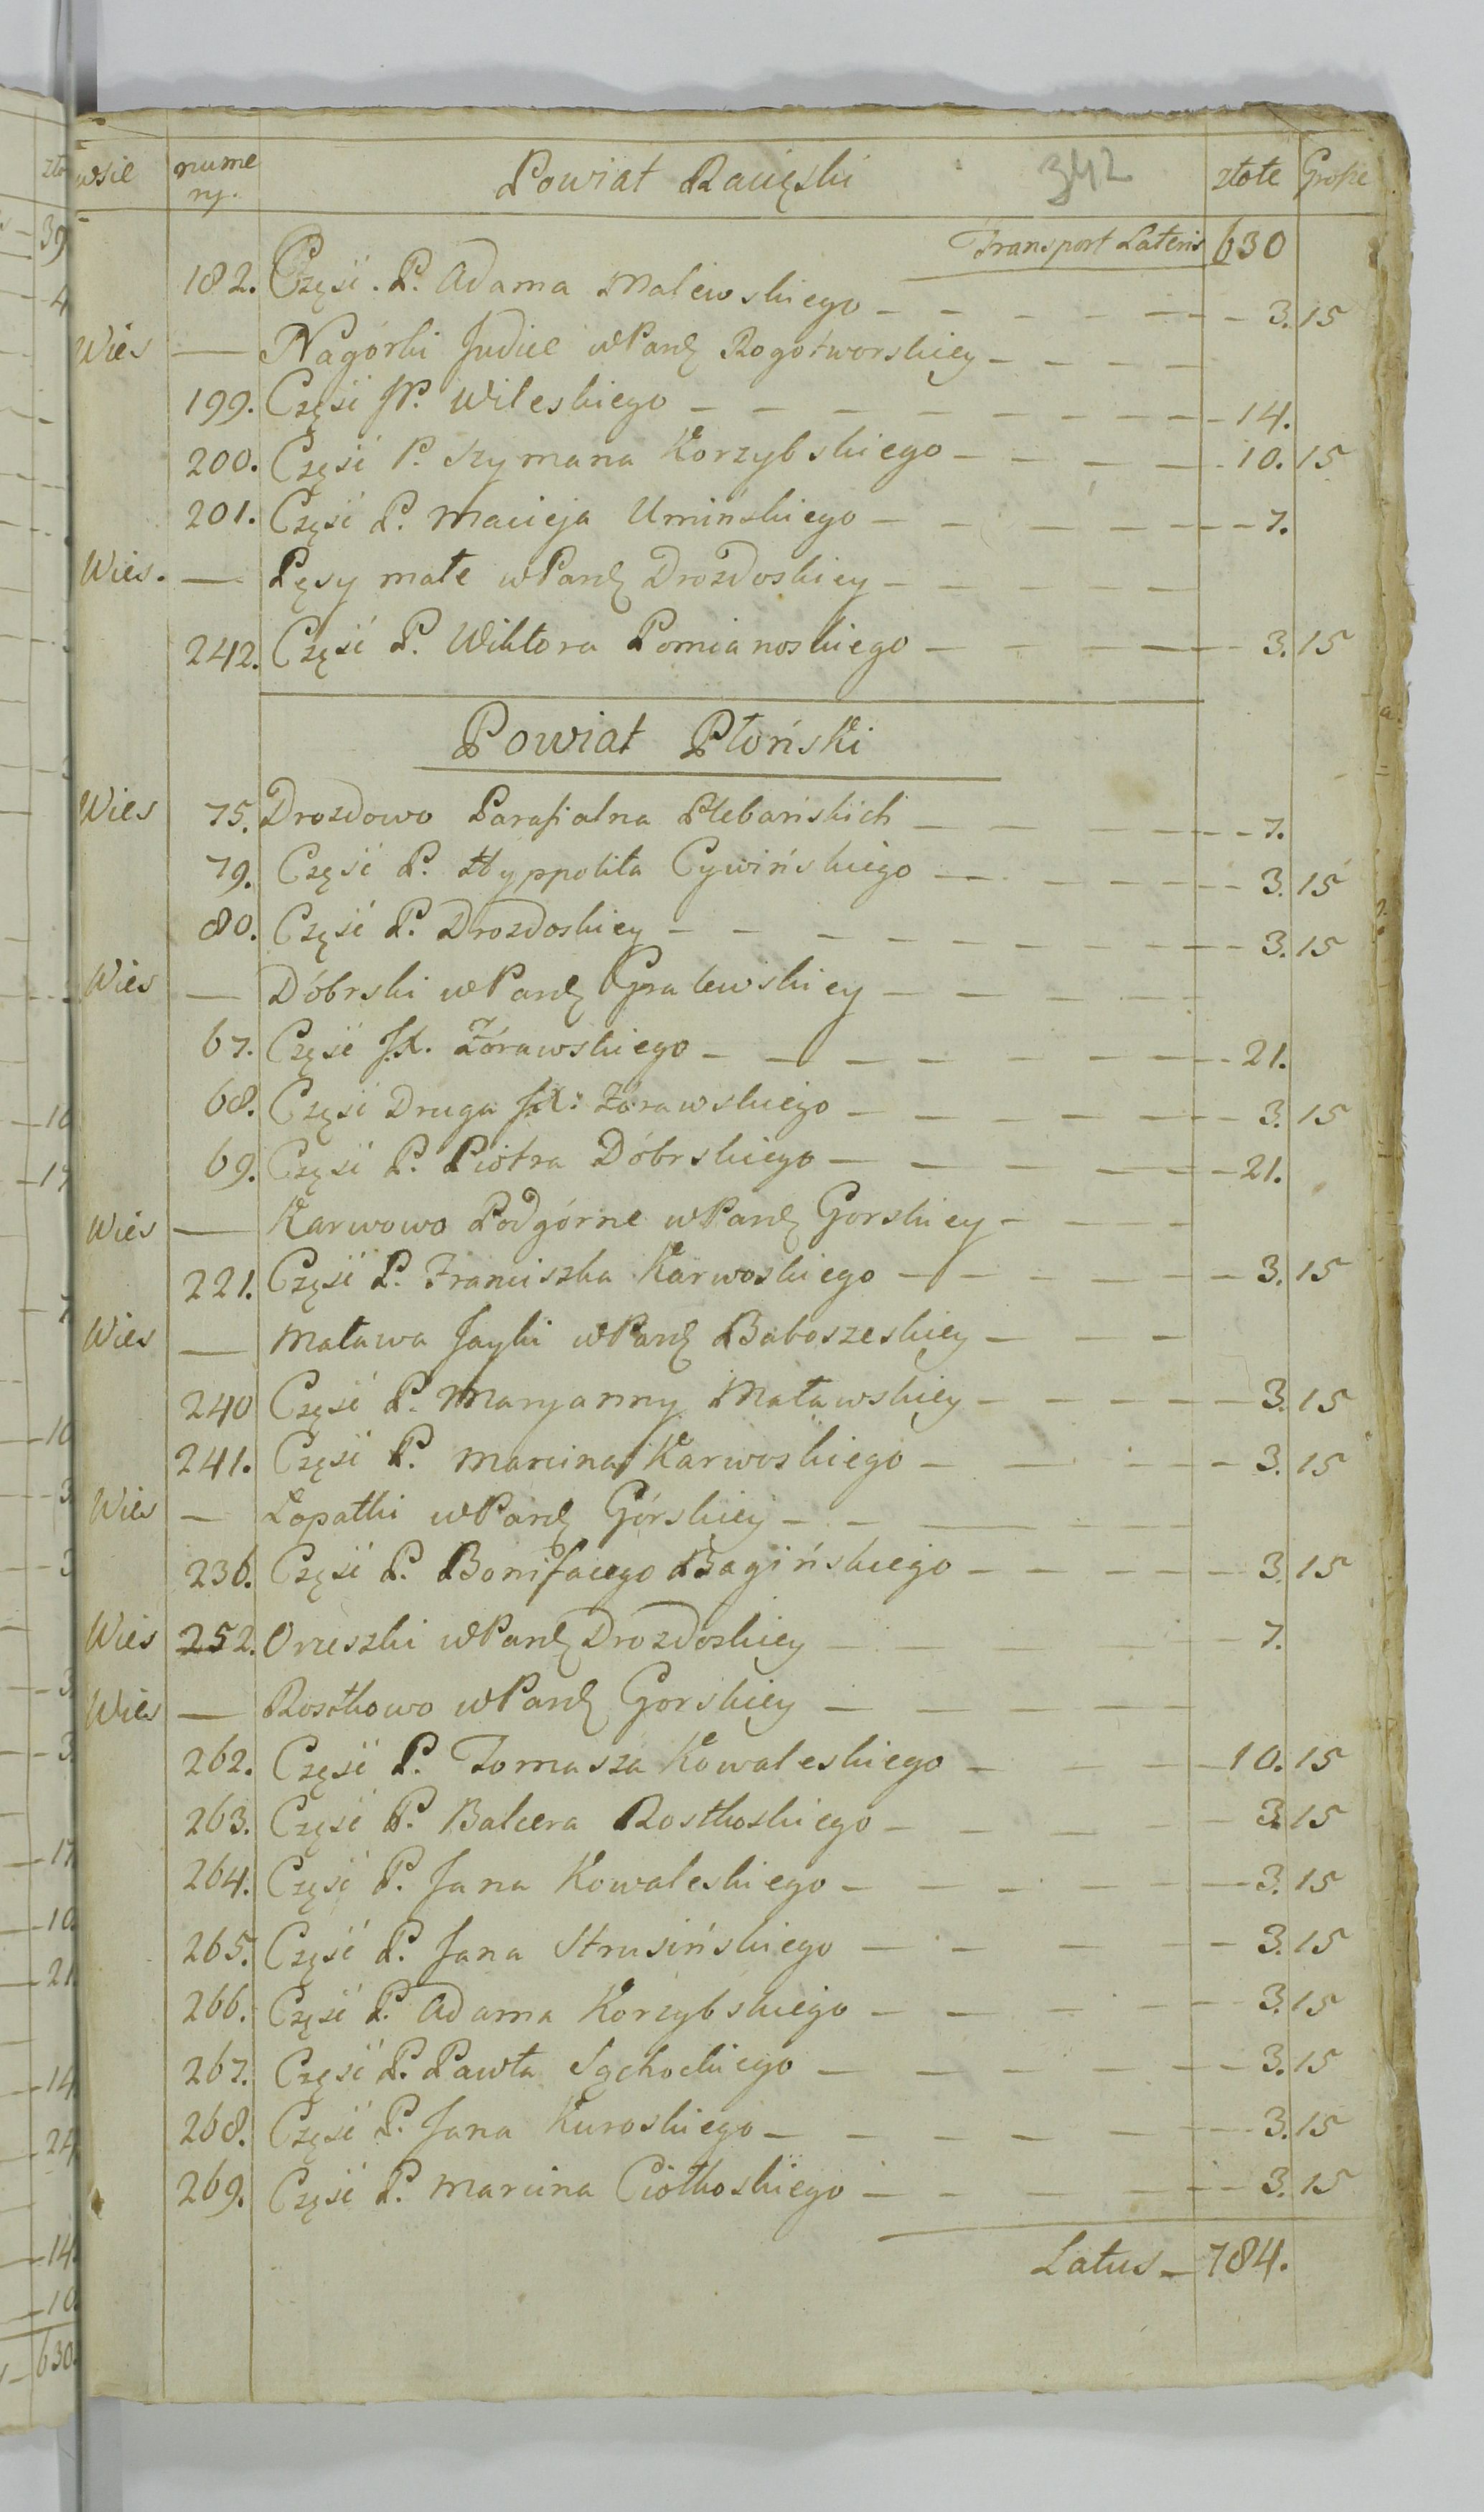 wsie numery. Powiat Racięski 342 złote Grosze
Transport Lateris 630
182. Częsć. P. Adama Malewskiego 3. 15
Wies Nagórki Judice w Parafi Rogotworskiey
199. Częsć JP. Wileskiego 14.
200. Częsć P. Szymana Korzybskiego 10. 15
201. Częsć P. Macieja Umińskiego 7.
Wies. Pęsy małe w Parafi Drozdoskiey
242. Częsć P. Wiktora Pomianoskiego 3. 15
Powiat Płoński
Wies 75. Drozdowo Parafialna Plebańskich 7.
79. Częsć P. Hyppolita Cywińskiego 3. 15
80. Częsć P. Drozdoskiey 3. 15
Wies Dóbrski w Parafi Gralewskiey
67. Częsć JX. Żórawskiego 21.
68. Częsć Druga JX: Żórawskiego 3. 15
69. Częsć P. Piotra Dóbrskiego 21.
Wies Karwowo Podgórne w Parafi Gorskiey
221. Częsć P. Franciszka Karwoskiego 3. 15
Wies Maława Jayki w Parafi Baboszeskiey
240 Częsć P. Maryanny Maławskiey 3. 15
241. Częsć P. Marcina Karwoskiego 3. 15
Wies Łopatki w Parafi Górskiey
236. Częsć P. Bonifacego Bagińskiego 3. 15
Wies 252. Orzeszki w Parafi Drozdoskiey 7.
Wies Rostkowo w Parafi Gorskiey
262. Częsć P. Tomasza Kowaleskiego 10. 15
263. Częsć P. Balcera Rostkoskiego 3. 15
264. Częsć P. Jana Kowaleskiego 3. 15
265. Częsć P. Jana Strusińskiego 3. 15
266. Częsć P. Adama Korzybskiego 3. 15
267. Częsć P. Pawła Sęchockiego 3. 15
268. Częsć P. Jana Kuroskiego 3. 15
269. Częsć P. Marcina Ciołkoskiego 3. 15
Latus 784.